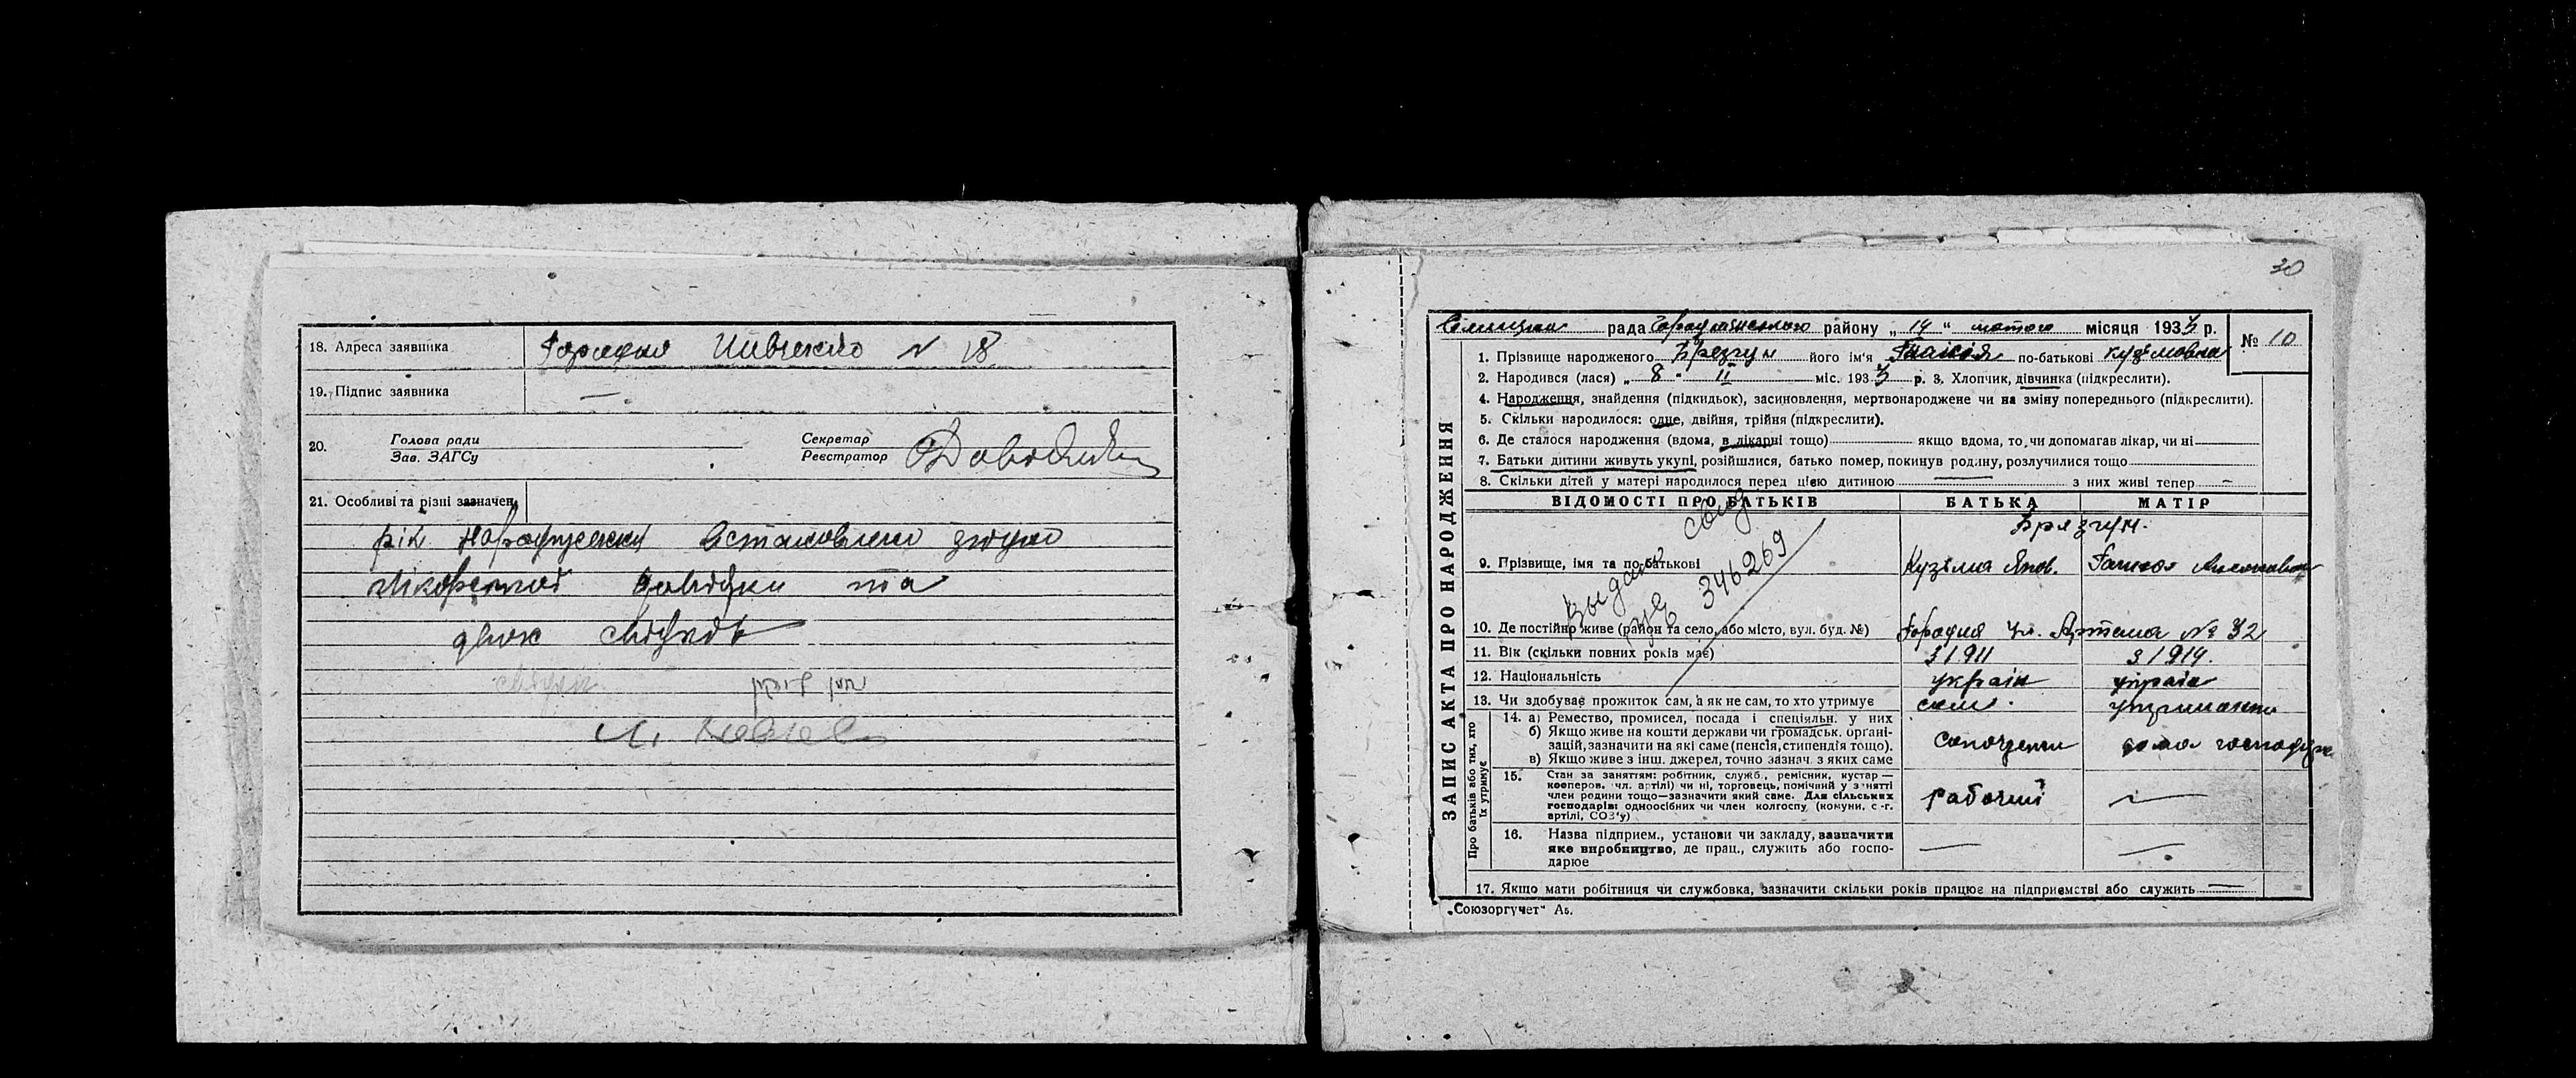 18. Адреса заявника Городня Шевченко N 18
19. Підпис заявника —
20. Голова ради
Зав. ЗАГСу
Секретар
Реєстратор
21. Особливі та різні зазначен.
рік народження встановлено згідно
лікарської довідки та
двох свідків
30
рада Городнянського району „ 14 " лютого місяця 1933 р.
№ 10
1. Прізвище народженого Брязгун його ім'я по-батькові Кузьмовна
2. Народився (лася) „ 8 " II міс. 1933 р. 3. Хлопчик, дівчинка (підкреслити).
4. Народження, знайдення (підкидьок), засиновлення, мертвонароджене чи на зміну попереднього (підкреслити).
5. Скільки народилося: одне, двійня, трійня (підкреслити).
6. Де сталося народження (вдома, в лікарні тощо) якщо вдома, то, чи допомагав лікар, чи ні
7. Батьки дитини живуть укупі, розійшлися, батько помер, покинув родину, розлучилися тощо
8. Скільки дітей у матері народилося перед цією дитиною — з них живі тепер —
ЗАПИС АКТА ПРО НАРОДЖЕННЯ
ВІДОМОСТІ ПРО БАТЬКІВ БАТЬКА МАТІР
Брязгун.
9. Прізвище, імя та по-батькові Кузьма Яков. Ганна
Выдано
346269
10. Де постійно живе (район та село, або місто, вул. буд. №) Городня ул. Артема № 32
11. Вік (скільки повних років має) з 1911 з 1914.
12. Національність україн україн
13. Чи здобуває прожиток сам, а як не сам, то хто утримує сам. утриманка
Про батьків або тих, хто їх утримує
14. а) Ремество, промисел, посада і спеціяльн. у них
б) Якщо живе на кошти держави чи громадськ. органі-
зацій, зазначити на які саме (пенсія, стипендія тощо).
в) Якщо живе з інш. джерел, точно зазнач. з яких саме
15. Стан за заняттям: робітник, служб., ремісник, кустар —
кооперов. чл. артілі) чи ні, торговець, помічний у занятті
член родини тощо—зазначити який саме. Для сільських
господарів: одноосібних чи член колгоспу (комуни, с.-г.
артілі, СОЗ'у)
рабочий —
16. Назва підприєм., установи чи закладу, зазначити
яке виробництво, де прац., служить або госпо-
дарює
— —
17. Якщо мати робітниця чи службовка, зазначити скільки років працює на підприємстві або служить —
„Союзоргучет" А5.